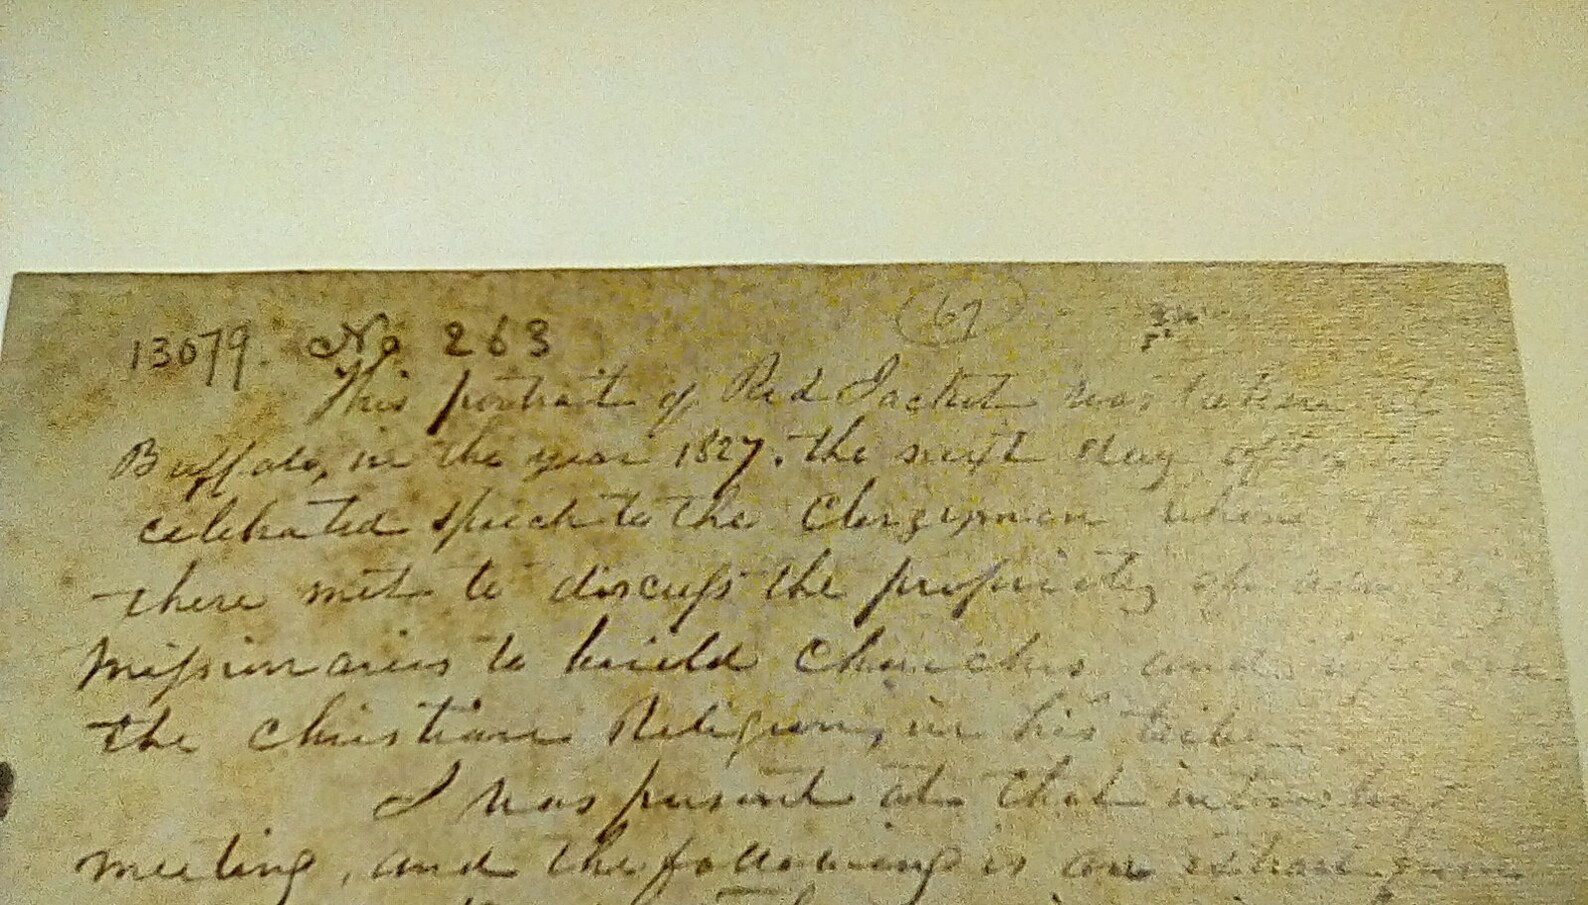 13079. No 263 (67)
This portrait of Red Jacket was taken at
Buffalo, in the year 1827. the next day of
celebrated speech to the Clergymen when
there met to discuss the propriety of
Missionaries to build Churches and
the Christian Religion, in his tribe.
I was present at that interesting
meeting, and the following is an